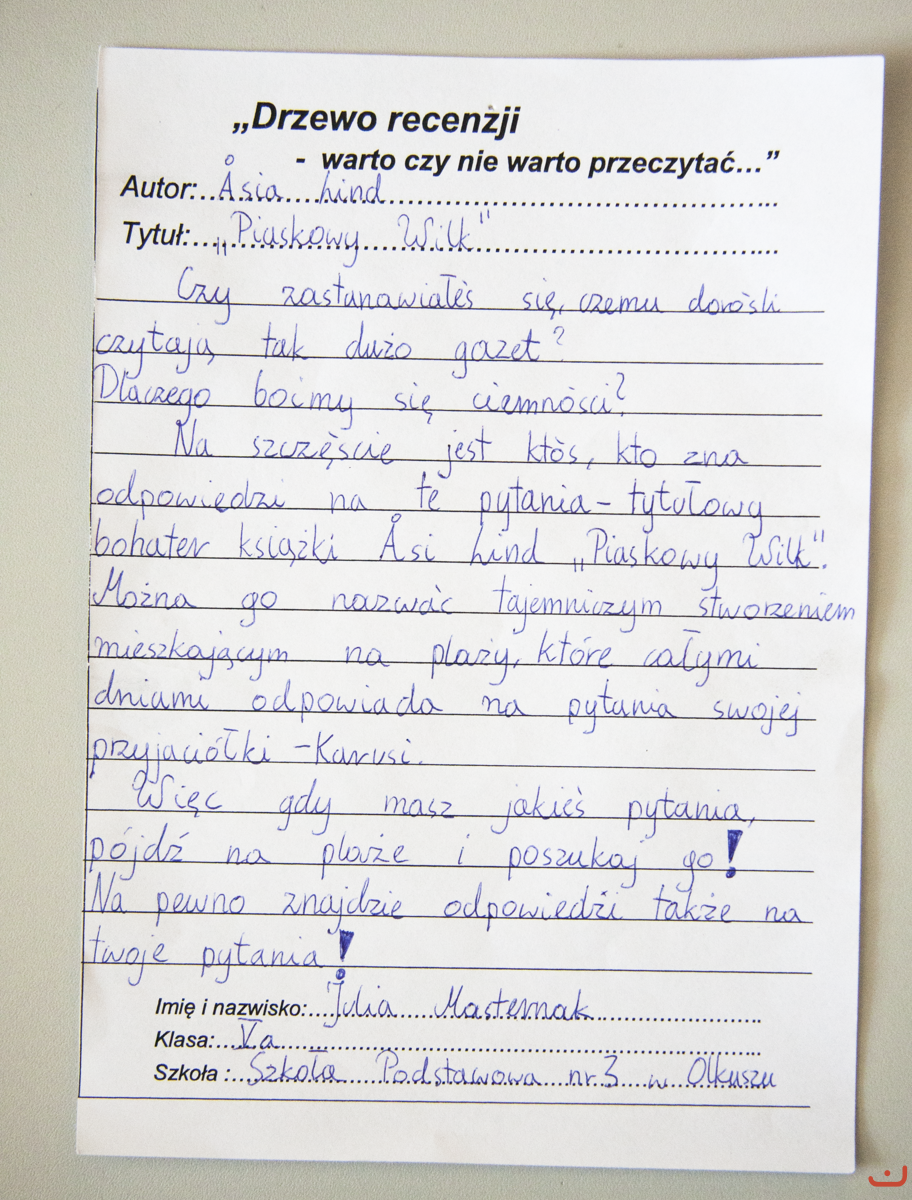 „Drzewo recenzji
- warto czy nie warto przeczytać...”
Autor:..Åsia Lind
Tytuł:...„Piaskowy Wilk"
Czy zastanawiałeś się, czemu dorośli
czytają tak dużo gazet?
Dlaczego boimy się ciemności?
Na szczęście jest ktoś, kto zna
odpowiedzi na te pytania – tytułowy
bohater książki Åsi Lind „Piaskowy Wilk".
Można go nazwać tajemniczym stworzeniem
mieszkającym na plaży, które całymi
dniami odpowiada na pytania swojej
przyjaciółki – Karusi.
Więc gdy masz jakieś pytania,
pójdź na plaże i poszukaj go!
Na pewno znajdzie odpowiedźi także na
twoje pytania!
Imię i nazwisko:....Julia Masternak
Klasa:...Va
Szkoła :...Szkoła Podstawowa nr.3 w Olkuszu